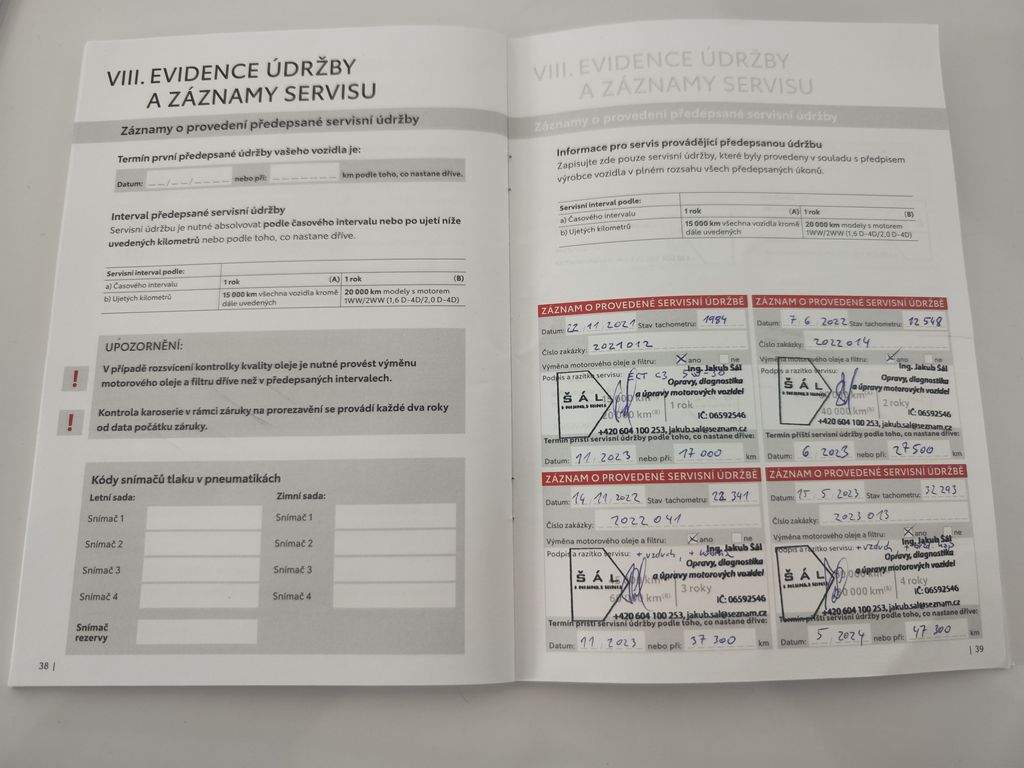 VIII. EVIDENCE ÚDRŽBY
A ZÁZNAMY SERVISU
Záznamy o provedení předepsané servisní údržby
Termín první předepsané údržby vašeho vozidla je:
Datum: __/__/____ nebo při: _______ km podle toho, co nastane dříve.
Interval předepsané servisní údržby
Servisní údržbu je nutné absolvovat podle časového intervalu nebo po ujetí níže
uvedených kilometrů nebo podle toho, co nastane dříve.
Servisní interval podle:
a) Časového intervalu 1 rok (A) 1 rok (B)
b) Ujetých kilometrů 15 000 km všechna vozidla kromě 20 000 km modely s motorem
dále uvedených 1WW/2WW (1,6 D-4D/2,0 D-4D)
UPOZORNĚNÍ:
! V případě rozsvícení kontrolky kvality oleje je nutné provést výměnu
motorového oleje a filtru dříve než v předepsaných intervalech.
! Kontrola karoserie v rámci záruky na prorezavění se provádí každé dva roky
od data počátku záruky.
Kódy snímačů tlaku v pneumatikách
Letní sada: Zimní sada:
Snímač 1 Snímač 1
Snímač 2 Snímač 2
Snímač 3 Snímač 3
Snímač 4 Snímač 4
Snímač
rezervy
38 |
VIII. EVIDENCE ÚDRŽBY
A ZÁZNAMY SERVISU
Záznamy o provedení předepsané servisní údržby
Informace pro servis provádějící předepsanou údržbu
Zapisujte zde pouze servisní údržby, které byly provedeny v souladu s předpisem
výrobce vozidla v plném rozsahu všech předepsaných úkonů.
Servisní interval podle:
a) Časového intervalu 1 rok (A) 1 rok (B)
b) Ujetých kilometrů 15 000 km všechna vozidla kromě 20 000 km modely s motorem
dále uvedených 1WW/2WW (1,6 D-4D/2,0 D-4D)
ZÁZNAM O PROVEDENÉ SERVISNÍ ÚDRŽBĚ
Datum: 22 11 2021 Stav tachometru: 1984
Číslo zakázky: 2021012
Výměna motorového oleje a filtru: X ano ne
Podpis a razítko servisu: Ing. Jakub Šál
ŠÁL Opravy, diagnostika
a úpravy motorových vozidel
1 rok
IČ: 06592546
+420 604 100 253, jakub.sal@seznam.cz
Termín příští servisní údržby podle toho, co nastane dříve:
Datum: 11 2023 nebo při: 17 000 km
ZÁZNAM O PROVEDENÉ SERVISNÍ ÚDRŽBĚ
Datum: 7 6 2022 Stav tachometru: 12 548
Číslo zakázky: 2022014
Výměna motorového oleje a filtru: X ano ne
Ing. Jakub Šál
ŠÁL Opravy, diagnostika
a úpravy motorových vozidel
2 roky
40 000 km(B) IČ: 06592546
+420 604 100 253, jakub.sal@seznam.cz
Termín příští servisní údržby podle toho, co nastane dříve:
Datum: 6 2023 nebo při: 27500 km
ZÁZNAM O PROVEDENÉ SERVISNÍ ÚDRŽBĚ
Datum: 14 11 2022 Stav tachometru: 22 341
Číslo zakázky: 2022 041
Výměna motorového oleje a filtru: X ano ne
Podpis a razítko servisu: + vzduch, +
Ing. Jakub Šál
ŠÁL Opravy, diagnostika
a úpravy motorových vozidel
3 roky
IČ: 06592546
+420 604 100 253, jakub.sal@seznam.cz
Termín příští servisní údržby podle toho, co nastane dříve:
Datum: 11 2023 nebo při: 37 300 km
ZÁZNAM O PROVEDENÉ SERVISNÍ ÚDRŽBĚ
Datum: 15 5 2023 Stav tachometru: 32 293
Číslo zakázky: 2023 013
Výměna motorového oleje a filtru: X ano ne
Podpis a razítko servisu: + vzduch,
Ing. Jakub Šál
ŠÁL Opravy, diagnostika
a úpravy motorových vozidel
4 roky
IČ: 06592546
+420 604 100 253, jakub.sal@seznam.cz
Termín příští servisní údržby podle toho, co nastane dříve:
Datum: 5 2024 nebo při: 47 300 km
| 39